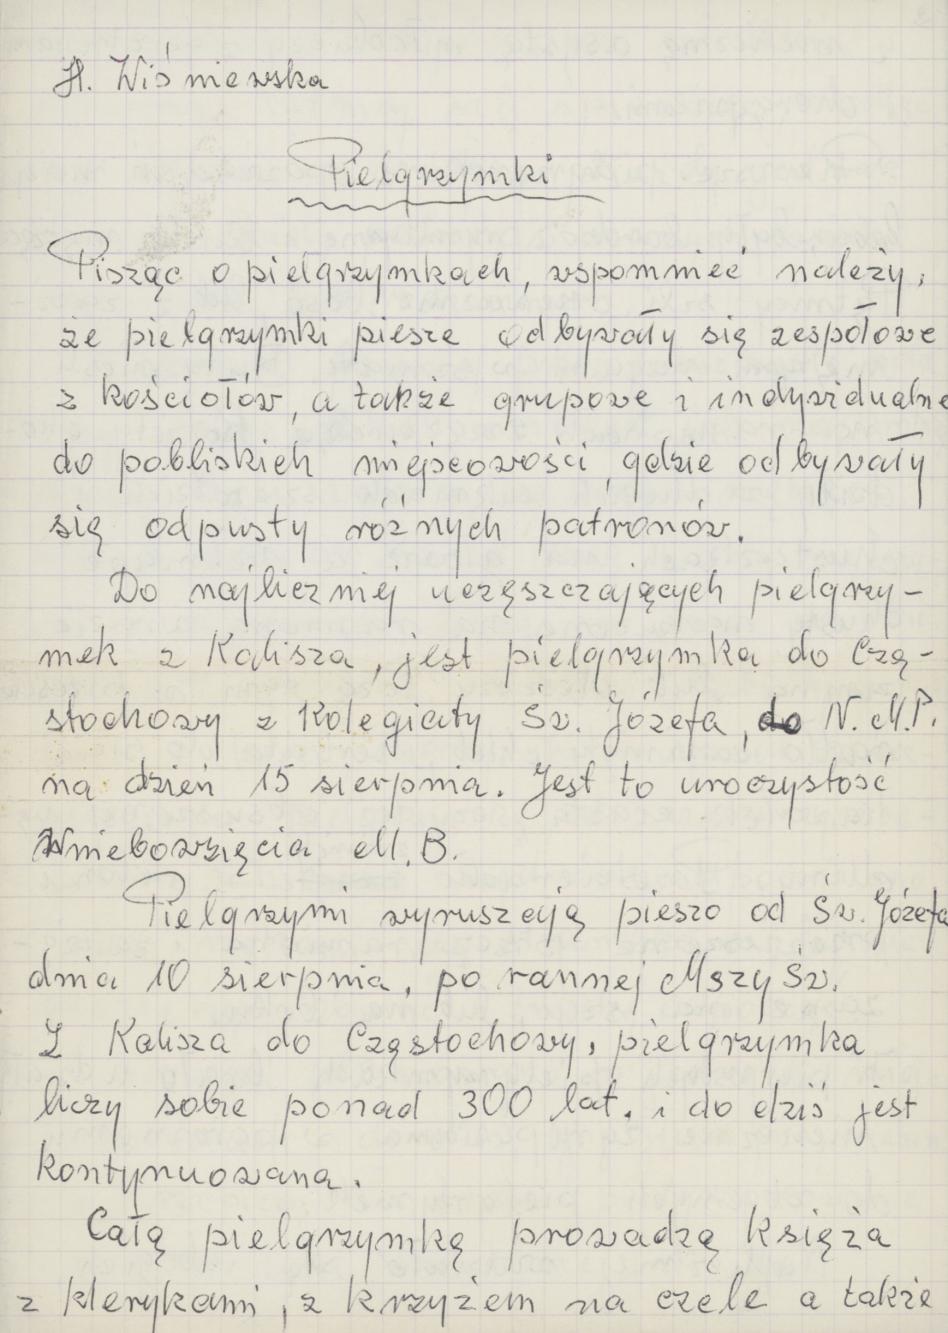 H. Wiśniewska
Pielgrzymki
Pisząc o pielgrzymkach, wspomnieć należy,
że pielgrzymki piesze odbywały się zespołowe
z kościołów, a także grupowe i indywidualne
do pobliskich miejscowości, gdzie odbywały
się odpusty różnych patronów.
Do najliczniej uczęszczających pielgrzy-
mek z Kalisza, jest pielgrzymka do Czę-
stochowy z Kolegiaty Św. Józefa, do N.M.P.
na dzień 15 sierpnia. Jest to uroczystość
Wniebowzięcia M.B.
Pielgrzymi wyruszają pieszo od Św. Józefa
dnia 10 sierpnia, po rannej Mszy Św.
Z Kalisza do Częstochowy, pielgrzymka
liczy sobie ponad 300 lat. i do dziś jest
kontynuowana.
Całą pielgrzymkę prowadzą księża
z klerykami, z krzyżem na czele a także